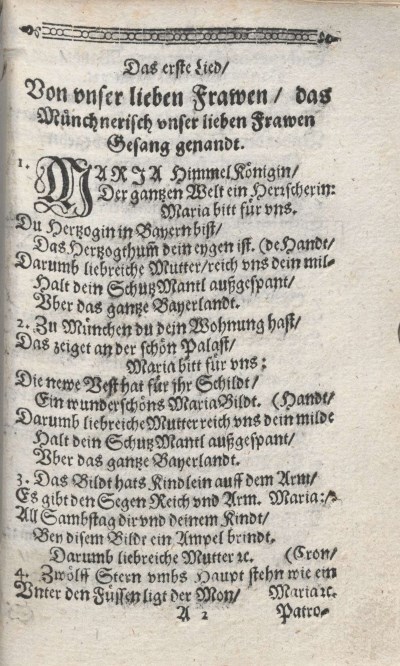 Das erste Lied/
Von vnser lieben Frawen/ das
Münchnerisch vnser lieben Frawen
Gesang genandt.
1. MARJA Himmel Königin/
Der gantzen Welt ein Herrscherin:
Maria bitt für vns.
Du Hertzogin in Bayern bist/
Das Hertzogthum̃ dein eygen ist. (de Handt/
Darumb liebreiche Mutter/ reich vns dein mil-
Halt dein SchutzMantl außgespant/
Vber das gantze Bayerlandt.
2. Zu München du dein Wohnung hast/
Das zeiget an der schön Palast/
Maria bitt für vns:
Die newe Vest hat für jhr Schildt/
Ein wunderschöns MariaBildt. (Handt/
Darumb liebreiche Mutter reich vns dein milde
Halt dein SchutzMantl außgespant/
Vber das gantze Bayerlandt.
3. Das Bildt hats Kindlein auff dem Arm/
Es gibt den Segen Reich vnd Arm. Maria:/:
All Sambstag dir vnd deinem Kindt/
Ben disem Bildt ein Ampel brindt.
Darumb liebreiche Mutter ꝛc. (Cron/
4. Zwölff Stern vmbs Haupt stehn wie ein
Vnter den Füssen ligt der Mon/ Maria ꝛc.
A 2 Patro-